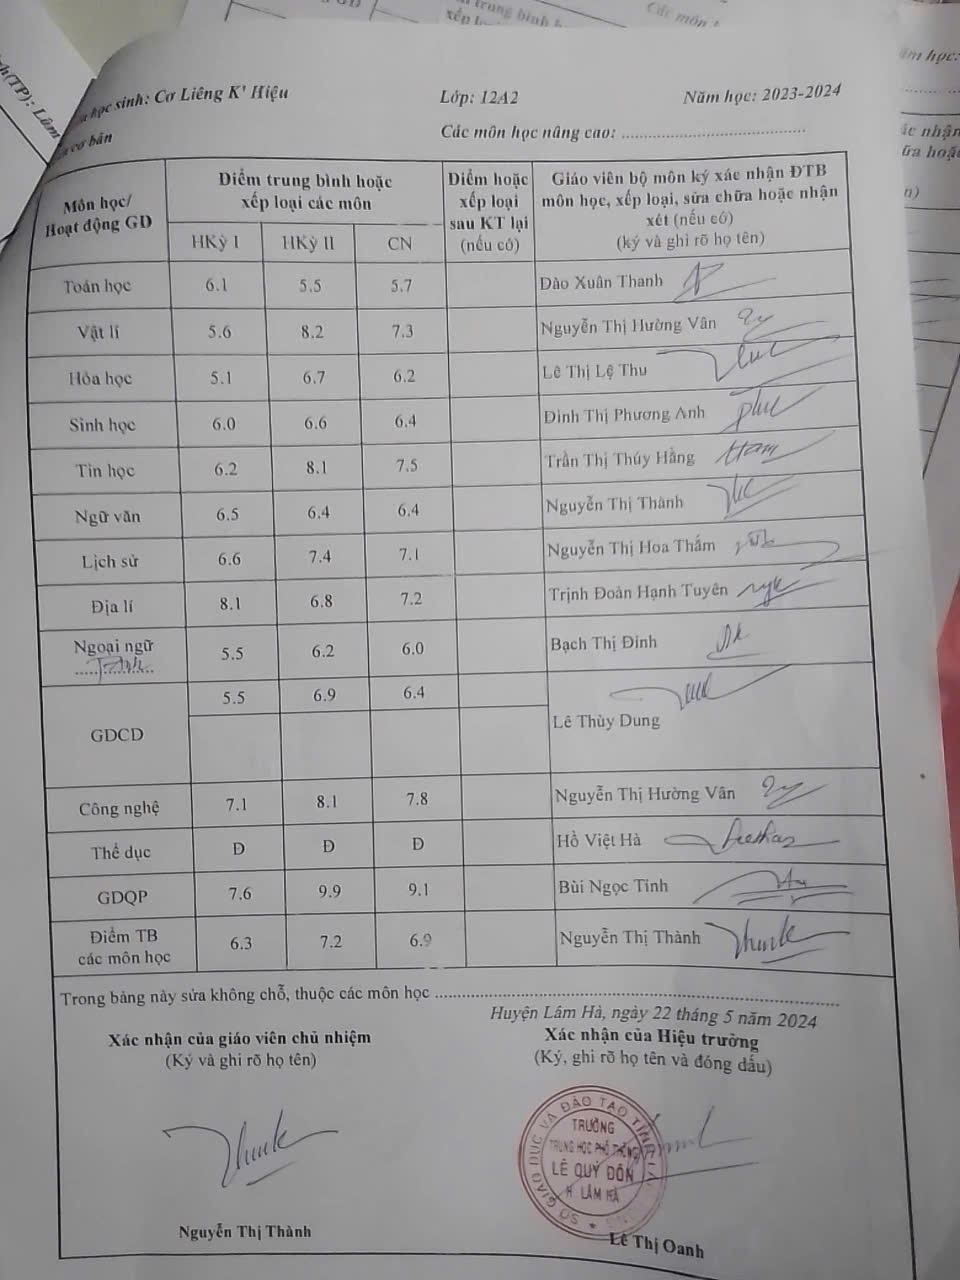 học sinh: Cơ Liêng K' Hiệu Lớp: 12A2 Năm học: 2023-2024
cơ bản Các môn học nâng cao: ...............................
Môn học/ Hoạt động GD
Điểm trung bình hoặc xếp loại các môn
Điểm hoặc xếp loại sau KT lại (nếu có)
Giáo viên bộ môn ký xác nhận ĐTB môn học, xếp loại, sửa chữa hoặc nhận xét (nếu có) (ký và ghi rõ họ tên)
HKỳ I HKỳ II CN
Toán học 6.1 5.5 5.7 Đào Xuân Thanh
Vật lí 5.6 8.2 7.3 Nguyễn Thị Hường Vân
Hóa học 5.1 6.7 6.2 Lê Thị Lệ Thu
Sinh học 6.0 6.6 6.4 Đinh Thị Phương Anh
Tin học 6.2 8.1 7.5 Trần Thị Thúy Hằng
Ngữ văn 6.5 6.4 6.4 Nguyễn Thị Thành
Lịch sử 6.6 7.4 7.1 Nguyễn Thị Hoa Thắm
Địa lí 8.1 6.8 7.2 Trịnh Đoàn Hạnh Tuyên
Ngoại ngữ 5.5 6.2 6.0 Bạch Thị Đinh
GDCD 5.5 6.9 6.4 Lê Thùy Dung
Công nghệ 7.1 8.1 7.8 Nguyễn Thị Hường Vân
Thể dục Đ Đ Đ Hồ Việt Hà
GDQP 7.6 9.9 9.1 Bùi Ngọc Tinh
Điểm TB các môn học 6.3 7.2 6.9 Nguyễn Thị Thành
Trong bảng này sửa không chỗ, thuộc các môn học ...............................
Huyện Lâm Hà, ngày 22 tháng 5 năm 2024
Xác nhận của giáo viên chủ nhiệm
(Ký và ghi rõ họ tên)
Xác nhận của Hiệu trưởng
(Ký, ghi rõ họ tên và đóng dấu)
SỞ GIÁO DỤC VÀ ĐÀO TẠO TỈNH
TRƯỜNG
TRUNG HỌC PHỔ THÔNG
LÊ QUÝ ĐÔN
H. LÂM HÀ
Nguyễn Thị Thành
Lê Thị Oanh